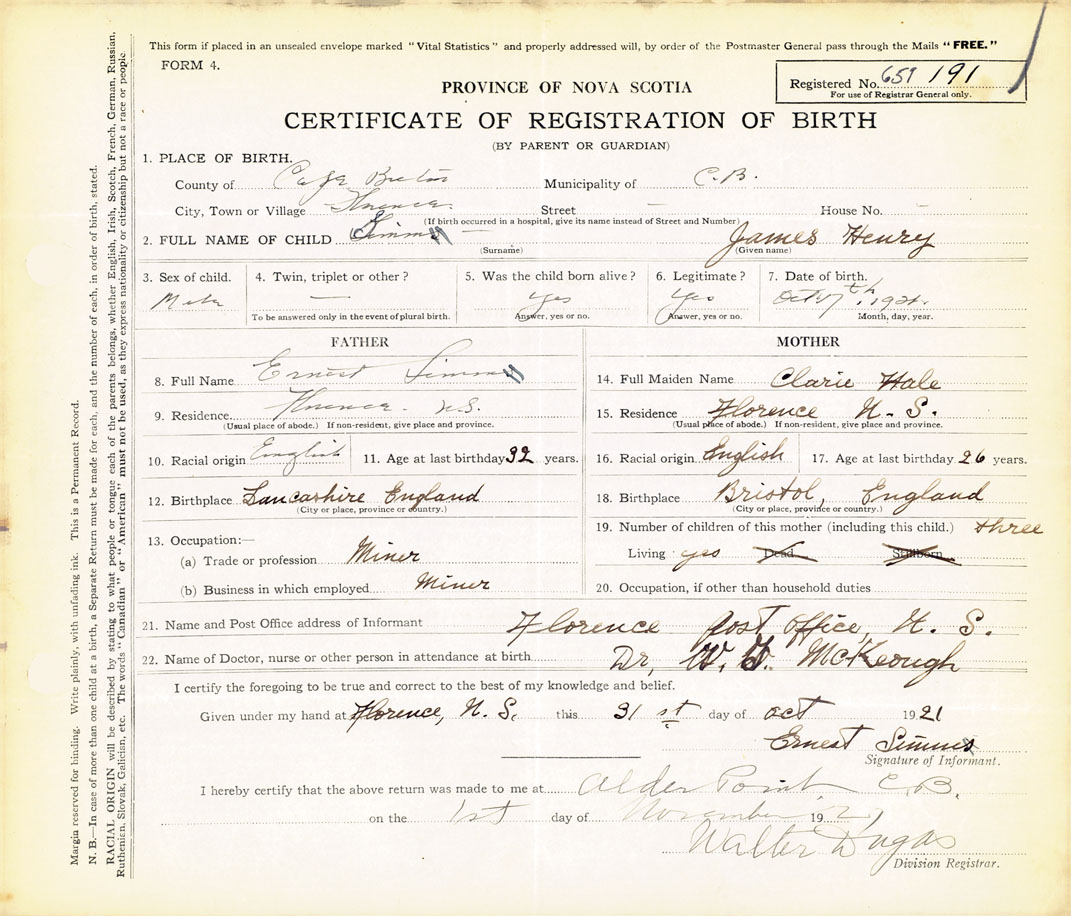 This form if placed in an unsealed envelope marked "Vital Statistics" and properly addressed will, by order of the Postmaster General pass through the Mails "FREE."
FORM 4.
Registered No. 659 191
For use of Registrar General only.
PROVINCE OF NOVA SCOTIA
CERTIFICATE OF REGISTRATION OF BIRTH
(BY PARENT OR GUARDIAN)
1. PLACE OF BIRTH.
County of Cape Breton Municipality of C.B.
City, Town or Village Florence Street — House No. —
(If birth occurred in a hospital, give its name instead of Street and Number)
2. FULL NAME OF CHILD James Henry
(Surname) (Given name)
3. Sex of child. 4. Twin, triplet or other? 5. Was the child born alive? 6. Legitimate? 7. Date of birth.
Male — Yes Yes Oct 17th, 1921.
To be answered only in the event of plural birth. Answer, yes or no. Answer, yes or no. Month, day, year.
FATHER
8. Full Name Ernest
9. Residence. Florence. N.S.
(Usual place of abode.) If non-resident, give place and province.
10. Racial origin English 11. Age at last birthday 32 years.
12. Birthplace Lancashire England
(City or place, province or country.)
13. Occupation:—
(a) Trade or profession Miner
(b) Business in which employed Miner
MOTHER
14. Full Maiden Name Clarie Hale
15. Residence Florence N. S.
(Usual place of abode.) If non-resident, give place and province.
16. Racial origin English 17. Age at last birthday 26 years.
18. Birthplace Bristol, England
(City or place, province or country.)
19. Number of children of this mother (including this child.) three
Living yes Dead Stillborn
20. Occupation, if other than household duties
21. Name and Post Office address of Informant Florence post office, N. S.
22. Name of Doctor, nurse or other person in attendance at birth Dr, W. McKeough
I certify the foregoing to be true and correct to the best of my knowledge and belief.
Given under my hand at Florence, N. S. this 31 st day of oct 1921
Ernest Simms
Signature of Informant.
I hereby certify that the above return was made to me at Alder Point C.B.
on the 1st day of November 1921
Walter Dugas
Division Registrar.
Margin reserved for binding. Write plainly, with unfading ink. This is a Permanent Record.
N. B.—In case of more than one child at a birth, a Separate Return must be made for each, and the number of each, in order of birth, stated.
RACIAL ORIGIN will be described by stating to what people or tongue each of the parents belongs, whether English, Irish, Scotch, French, German, Russian,
Ruthenian, Slovak, Galician, etc. The words "Canadian" or "American" must not be used, as they express nationality or citizenship but not a race or people.